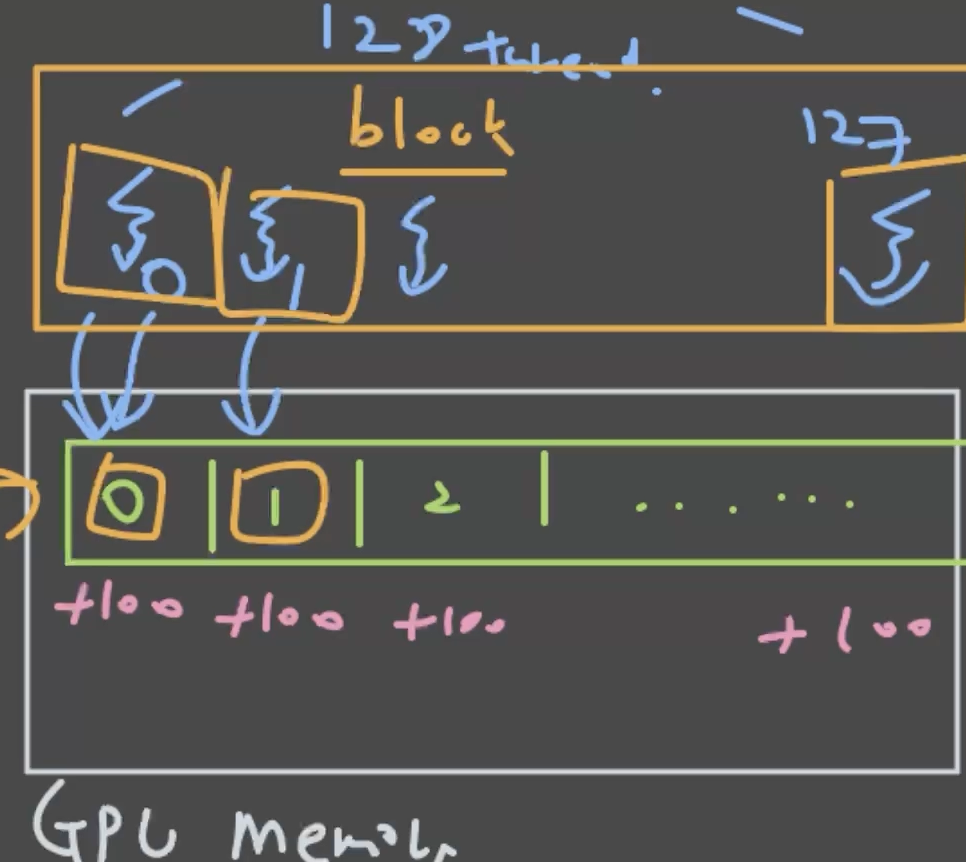 128 thread.
block
127
0 1
0 1 2 ......
+100 +100 +100 +100
GPU memory